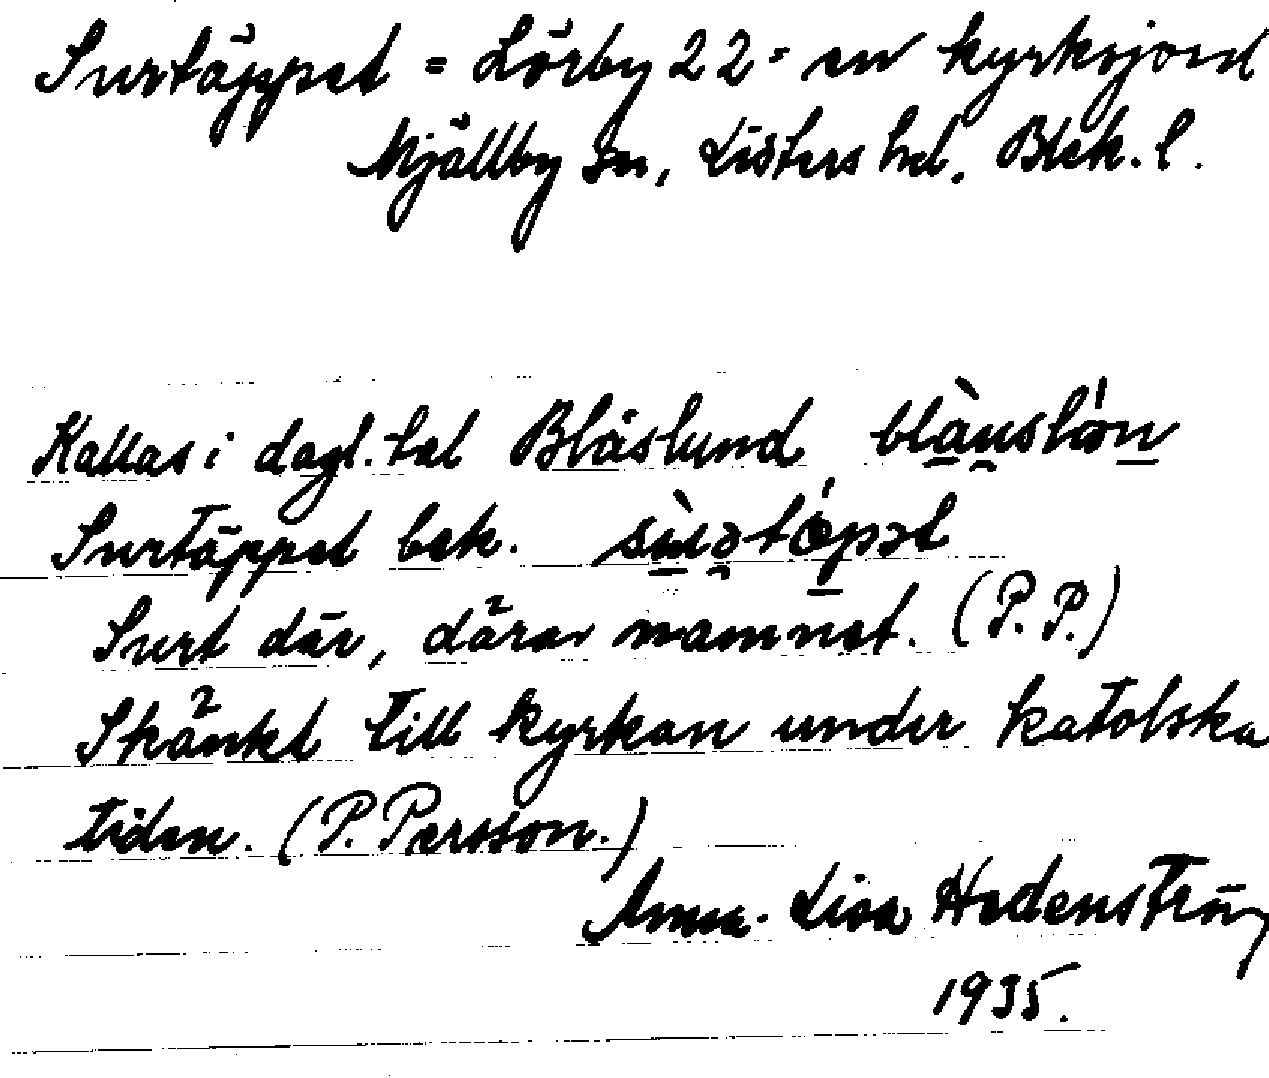 Surtäppet = Lörby 22 - en kyrkojord
Mjällby sn, Listers hd. Blek. l.
Kallas i dagl. tal Blåslund
Surtäppet bek.
Surt där, därav namnet. (P. P.)
Skänkt till kyrkan under katolska
tiden. (P. Persson.)
Anna-Lisa Hedenström
1935.